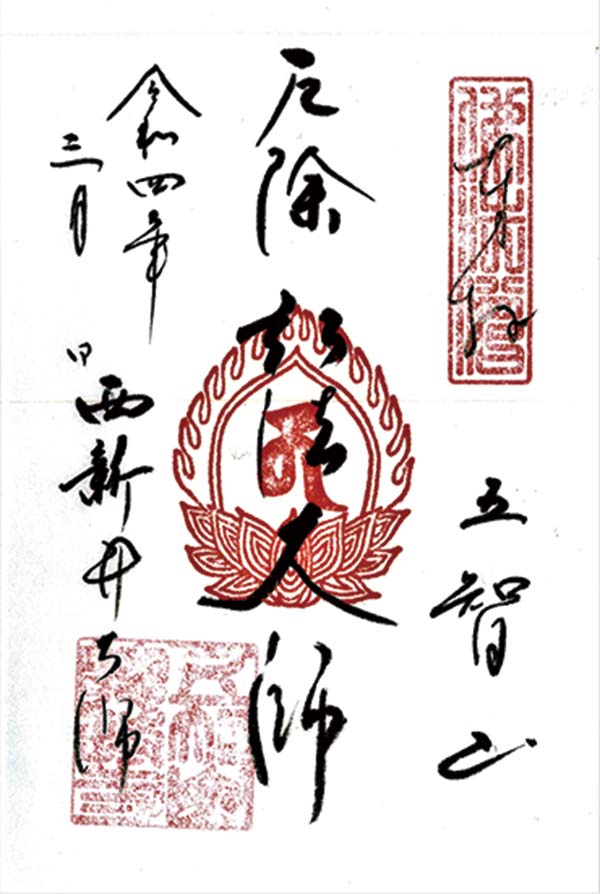 奉拝
五智山
厄除 弘法大師
令和四年
三月 日
西新井大師